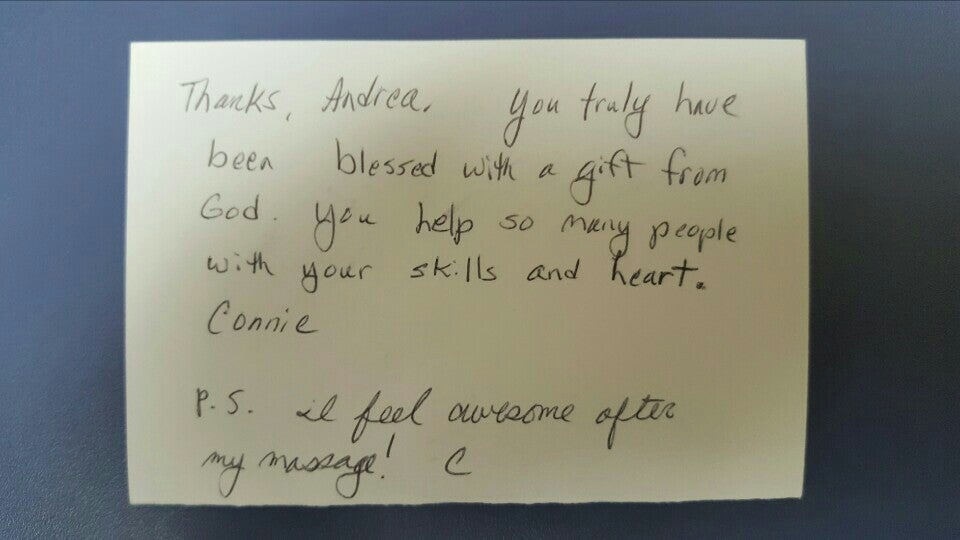 Thanks, Andrea. You truly have
been blessed with a gift from
God. You help so many people
with your skills and heart.
Connie
P.S. I feel awesome after
my massage! C